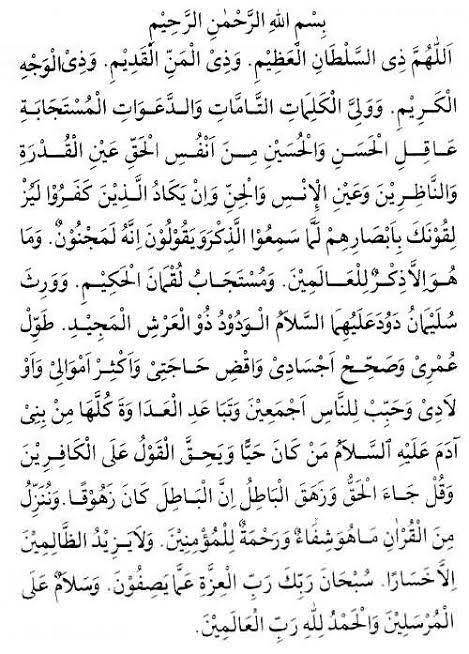 بِسْمِ اللهِ الرَّحْمٰنِ الرَّحِيْمِ
اَللّٰهُمَّ ذِى السَّلْطَانِ الْعَظِيْمِ. وَذِىْ الْمَنِّ الْقَدِيْمِ. وَذِىْ الْوَجْهِ
الْكَرِيْمِ. وَوَلِيَّ الْكَلِمَاتِ التَّامَّاتِ وَالدَّعَوَاتِ الْمُسْتَجَابَةِ
عَاقِلِ الْحَسَنِ وَالْحُسَيْنِ مِنَ اَنْفُسِ الْحَقِّ عَيْنِ الْقُدْرَةِ
وَالنَّاظِرِيْنَ وَعَيْنِ الْاِنْسِ وَالْجِنِّ وَاِنْ يَكَادُ الَّذِيْنَ كَفَرُوْا لَيُزْ
لِقُوْنَكَ بِاَبْصَارِهِمْ لَمَّا سَمِعُوْا الذِّكْرَ وَيَقُوْلُوْنَ اِنَّهُ لَمَجْنُوْنٌ. وَمَا
هُوَ اِلاَّ ذِكْرٌ لِلْعَالَمِيْنَ. وَمُسْتَجَابُ لُقْمَانَ الْحَكِيْمِ. وَوَرِثَ
سُلَيْمَانُ دَوُدَ عَلَيْهِمَا السَّلاَمُ الْوَدُوْدُ ذُو الْعَرْشِ الْمَجِيْدِ. طَوِّلْ
عُمْرِىْ وَصَحِّحْ اَجْسَادِىْ وَاقْضِ حَاجَتِىْ وَاَكْثِرْ اَمْوَالِىْ وَاَوْ
لاَدِىْ وَحَبِّبْ لِلنَّاسِ اَجْمَعِيْنَ وَتَبَا عَدِ الْعَدَا وَةَ كُلَّهَا مِنْ بَنِىْ
آدَمَ عَلَيْهِ السَّلاَمُ مَنْ كَانَ حَيًّا وَيَحِقَّ الْقَوْلُ عَلَى الْكَافِرِيْنَ
وَقُلْ جَاءَ الْحَقُّ وَزَهَقَ الْبَاطِلُ اِنَّ الْبَاطِلَ كَانَ زَهُوْقًا. وَنُنَزِّلُ
مِنَ الْقُرْاٰنِ مَا هُوَ شِفَاءٌ وَرَحْمَةٌ لِلْمُؤْمِنِيْنَ. وَلاَ يَزِيْدُ الظَّالِمِيْنَ
اِلاَّ خَسَارًا. سُبْحَانَ رَبِّكَ رَبِّ الْعِزَّةِ عَمَّا يَصِفُوْنَ. وَسَلاَمٌ عَلَى
الْمُرْسَلِيْنَ وَالْحَمْدُ لِلّٰهِ رَبِّ الْعَالَمِيْنَ.